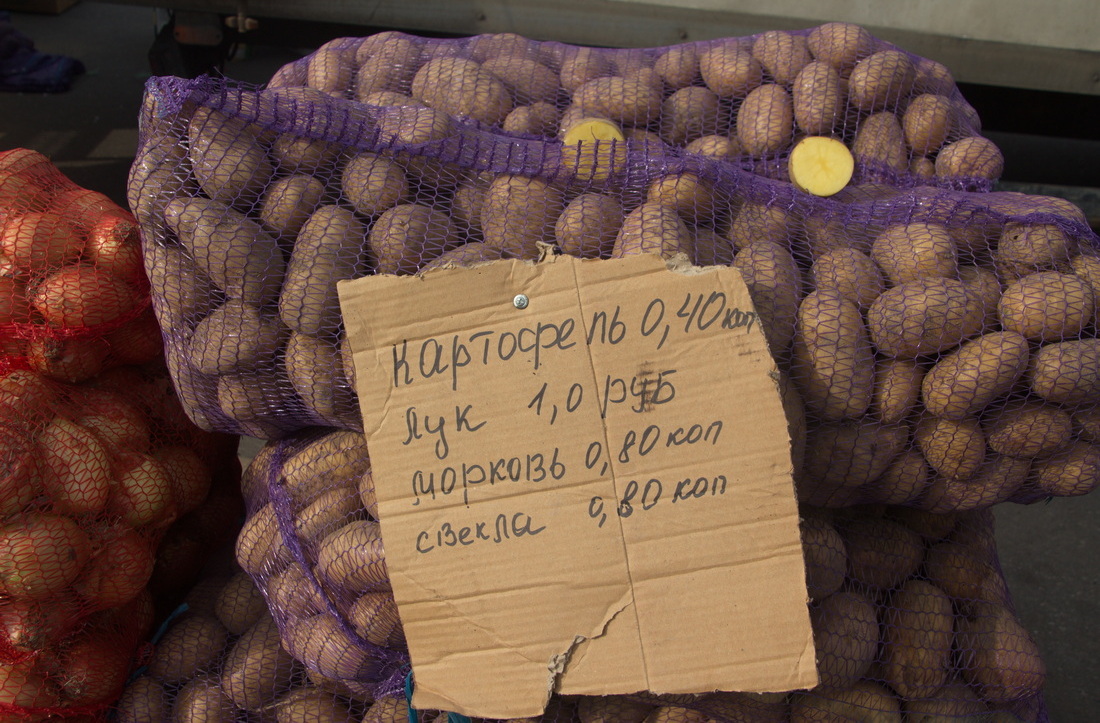 Картофель 0,40 коп
Лук 1,0 руб
морковь 0,80 коп
свекла 0,80 коп